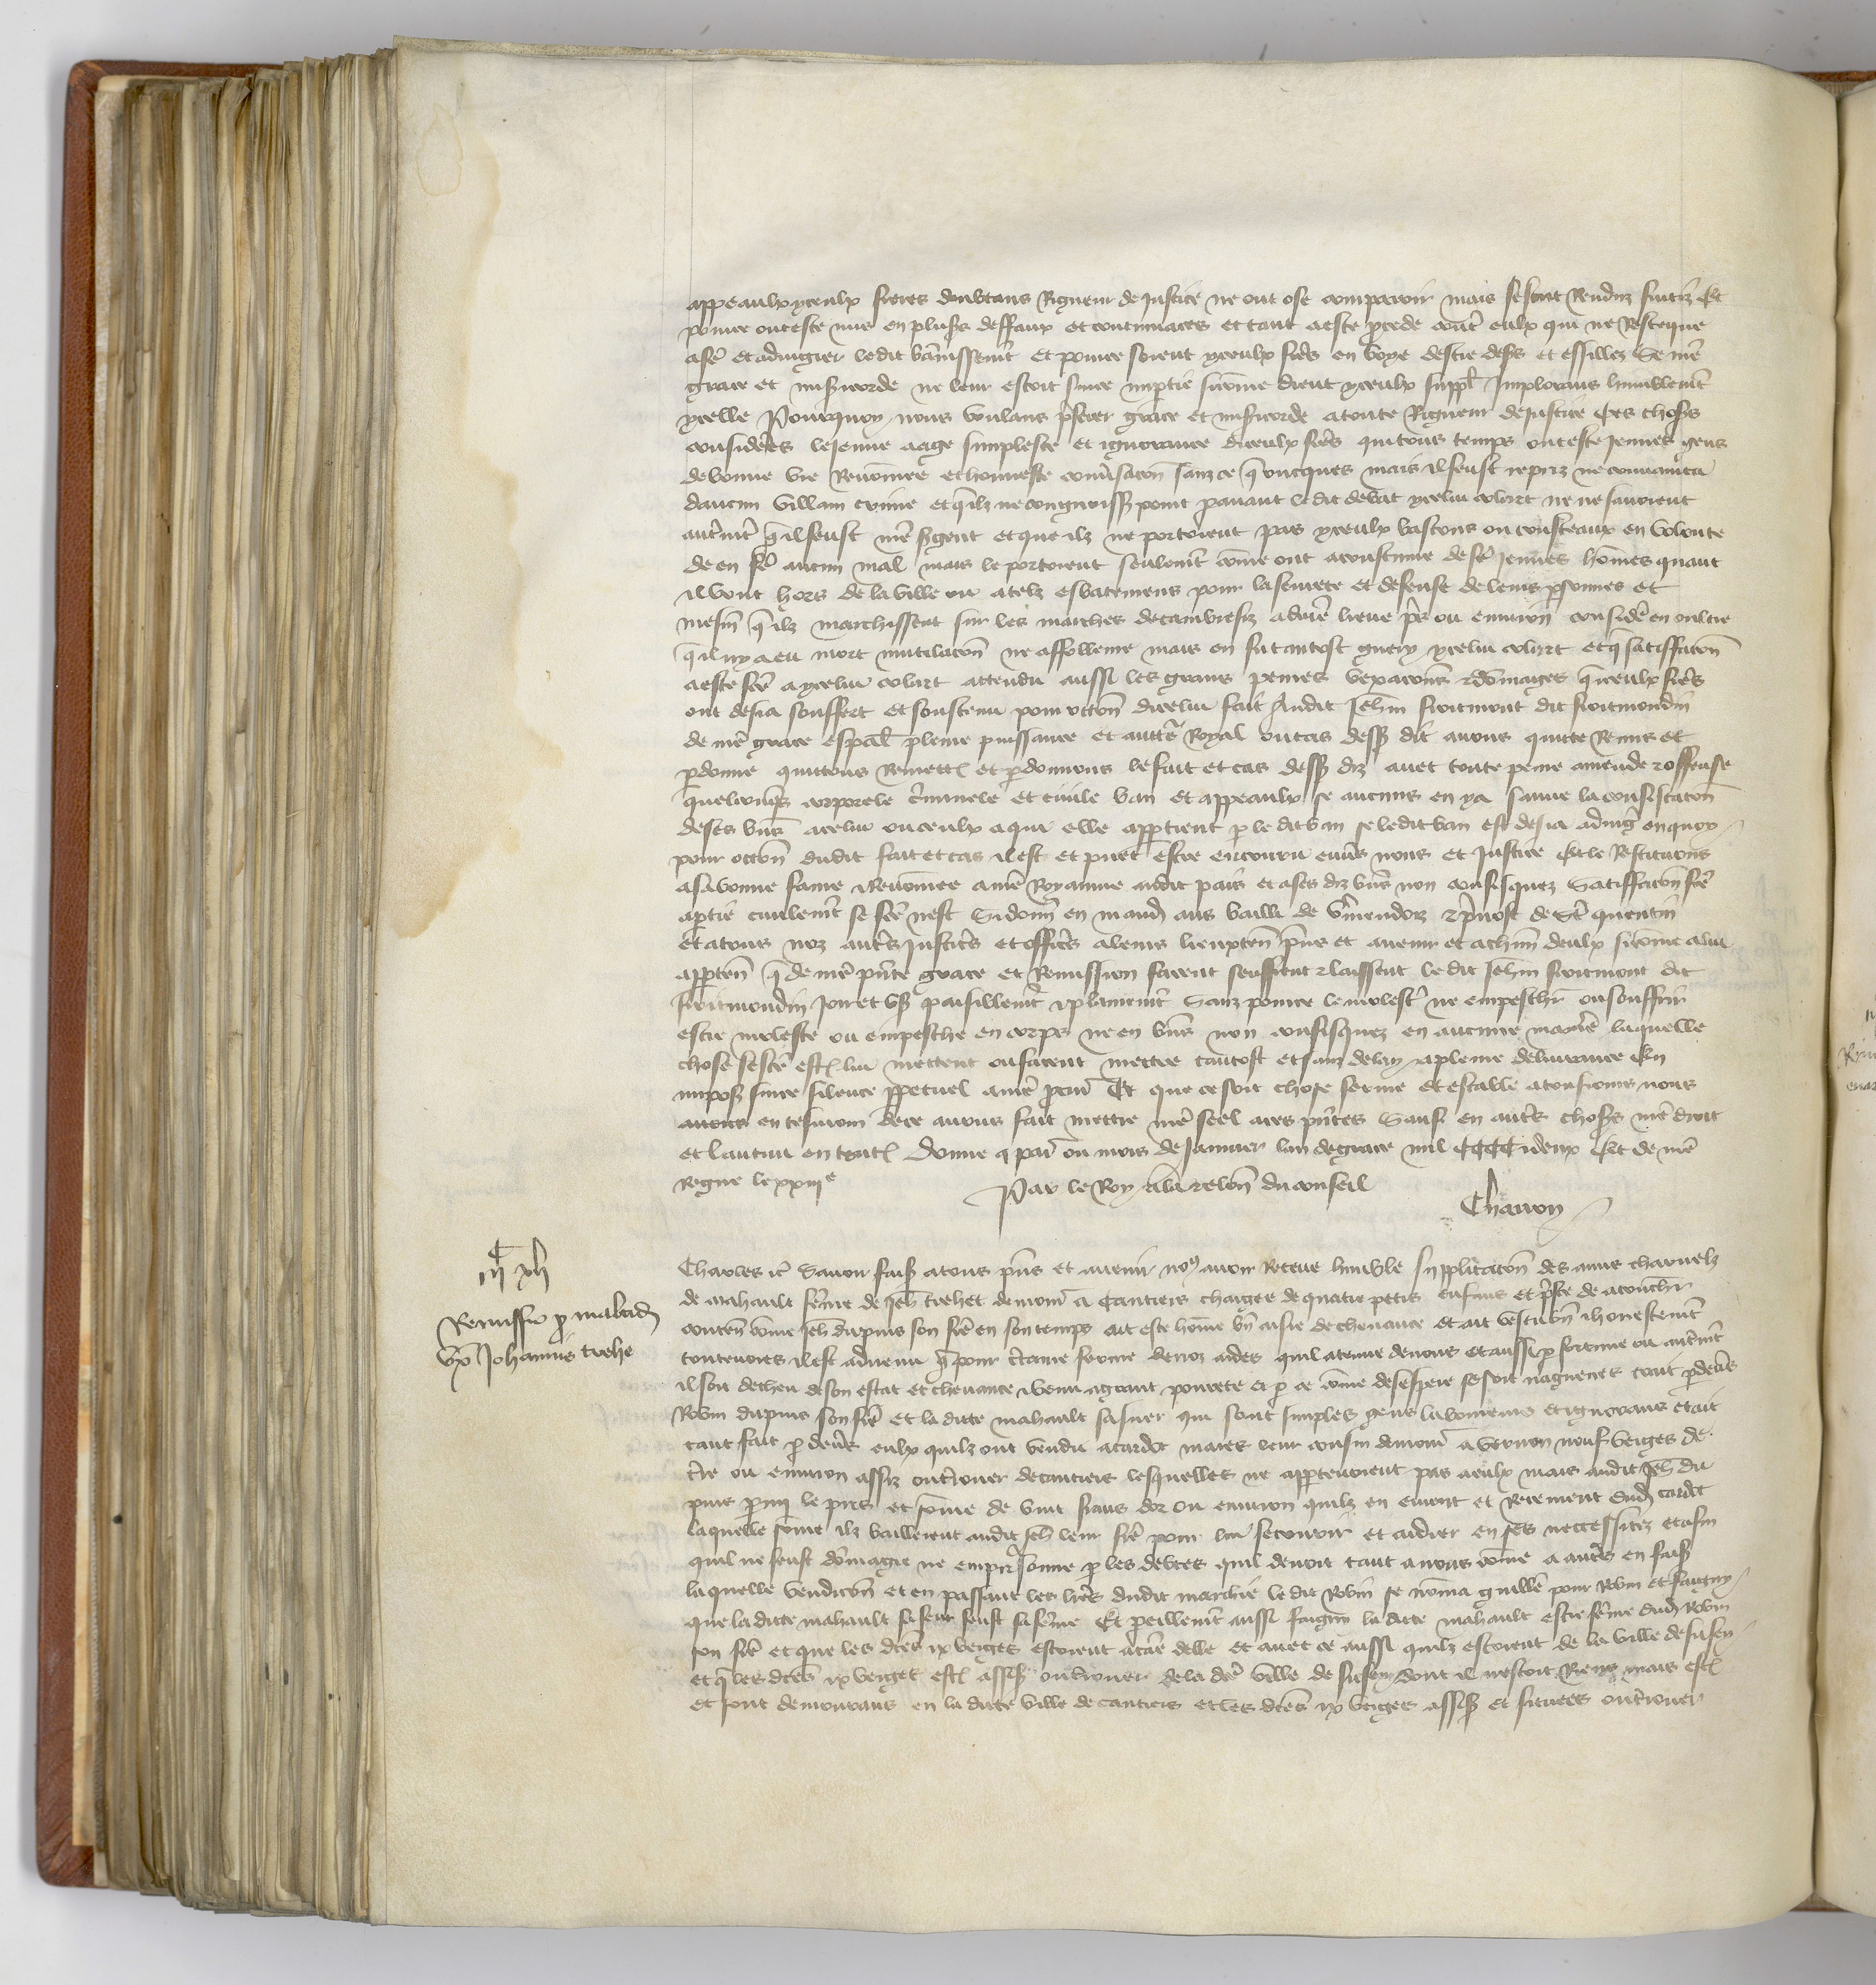 appeaulx yceulx freres doubtans Rigueur de Justice ne ont ose comparoir mais se sont Renduz fuitiz Et
pource ont este mis en pluss deffaux et contumaces et tant a este procede contre eulx qui ne Reste que
a fe et adiugier ledit bannissemt et pource soient yceulx freres en voye destre defs et essillez Se nre
grace et misicorde ne leur estoit sur ce impartie si comme dient yceulx suppl Implorans humblemt
ycelle Pourquoy nous voulans preferer grace et misicorde a toute Rigueur de Justice Ces choses
considerees le jeune aage simplesse et ignorance diceulx freres qui tous temps ont este jeunes gens
de bonne vie Renommee et honneste conversacion sanz ce q oncques mais il feust repris ne convaincu
daucun villain crime et qilz ne congnoiss point pavant le dit debat ycelui colart ne ne savoient
autremt q il feust nre sergent et que ilz ne portoient pas yceulx bastons ou cousteaux en volente
de en fe aucun mal mais le portoient seulemt come ont acoustume de fe jeunes homes quant
il vont hors de la ville ou a telz esbatemens pour la seurete et defense de leurs personnes et
mesm q ilz marchissent sur les marches de cambresiz a demie lieue pres ou environ consideré en oultre
q il ny a eu mort mutilacion ne affolleure mais en fut tantost guery ycelui colart et q satisfacion
a este fce a ycelui colart attendu aussi les grans peines vexacions & domaiges q iceulx freres
ont desia souffert et soustenu pour occon dicelui fait Audit Jehan froitmont dit froitmondin
de nre grace especial pleine puissance et auctte Royal ou cas dess dit avons quitte Remis et
pardonne quittons Remetts et pardonnons le fait et cas dess diz avec toute peine amende & offense
quelconqs corporele criminele et civile ban et appeaulx se aucuns en y a sauve la confiscacion
de ses biens a celui ou ceulx a qui elle appartient p le dit ban se ledit ban est desia adiugé en quoy
pour occon dudit fait et cas il est et puet estre encouru envers nous et Justice Et le Restituons
a sa bonne fame & Renommee a nre Royaume audit pais et a ses diz biens non confisquez Satisfacion fce
a partie civilemt se fce nest Si donns en mand aus bailli de Vermendoiz & prevost de St quentin
et a tous noz autres Justiciers et officiers a leurs lieuxten presens et avenir et a chun deulx si comme a lui
apparten q de nre presente grace et Remission facent seuffrent & laissent le dit Jehan froitmont dit
froitmondin Joir et us paisiblemt & plainemt Sanz pource le molester ne empeschier ou souffrir
estre moleste ou empesche en corps ne en biens non confisquez en aucune maniere laquelle
chose se fcte est lui mettent ou facent mettre tantost et sanz delay a pleine delivrance En
impos sur ce silence perpetuel a nre procur Et que ce soit chose ferme et estable a tousiours nous
avons en tesmoin de ce avons fait mettre nre seel a ces presentes Sauf en autres choses nre droit
et lautrui en toutes Donne a paris ou mois de Janvier lan de grace mil CCCC & deux Et de nre
Regne le xxiije
Par le Roy a la relon du conseil
Charron
iij xij
Remissio p mahald
uxe Johannis trehe
Charles &c Savoir fais a tous presens et avenir nous avoir Receue humble supplicacion des amis charnelz
de mahault feme de Jeh trehet demour a Cantiers chargee de quatre petis enfans et preste de acouchier
conten come Jeh dupuis son frere en son temps ait este home bien aisie de chevance et ait vesqu bien & honestemt
toutevoies il est advenu q pour certaine ferme de noz aides quil a tenue de nous et aussi p fortune ou autremt
il soit decheu de son estat et chevance & venu a grant poverte et p ce come desespere se soit nagueres trait pdevers
Robin dupuis son frere et la dicte mahault sa suer qui sont simples gens laboureurs et ignorans et ait
tant fait p devers eulx quilz ont vendu a cardot mares leur cousin demour a vernon neuf verges de
terre ou environ assiz ou trouer de cantiers lesquelles ne appartenoient pas a eulx mais audit Jeh du
puis parmi le pris et some de vint frans dor ou environ quilz en eurent et Receurent dud cardot
laquelle some ilz baillerent audit Jeh leur frere pour lui secourir et aidier en ses neccessitez et afin
quil ne feust domagie ne emprisonne p les debtes quil devoit tant a nous come a autres en fais
laquelle vendicion et en passant les lres dudit marchie le dit Robin se noma guille pour Robin et faigny
que la dicte mahault sa seur feust sa feme Et pareillemt aussi faigni la dicte mahault estre feme dud Robin
son frere et que les dces ix verges estoient a cause delle et avec ce aussi quilz estoient de la ville de susey
et q les dces ix verges est assiss ou trouer de la dce ville de susey dont il nestoit Riens mais est
et sont demourans en la dicte ville de cantiers et les dces ix verges assiss et situees ou trouer